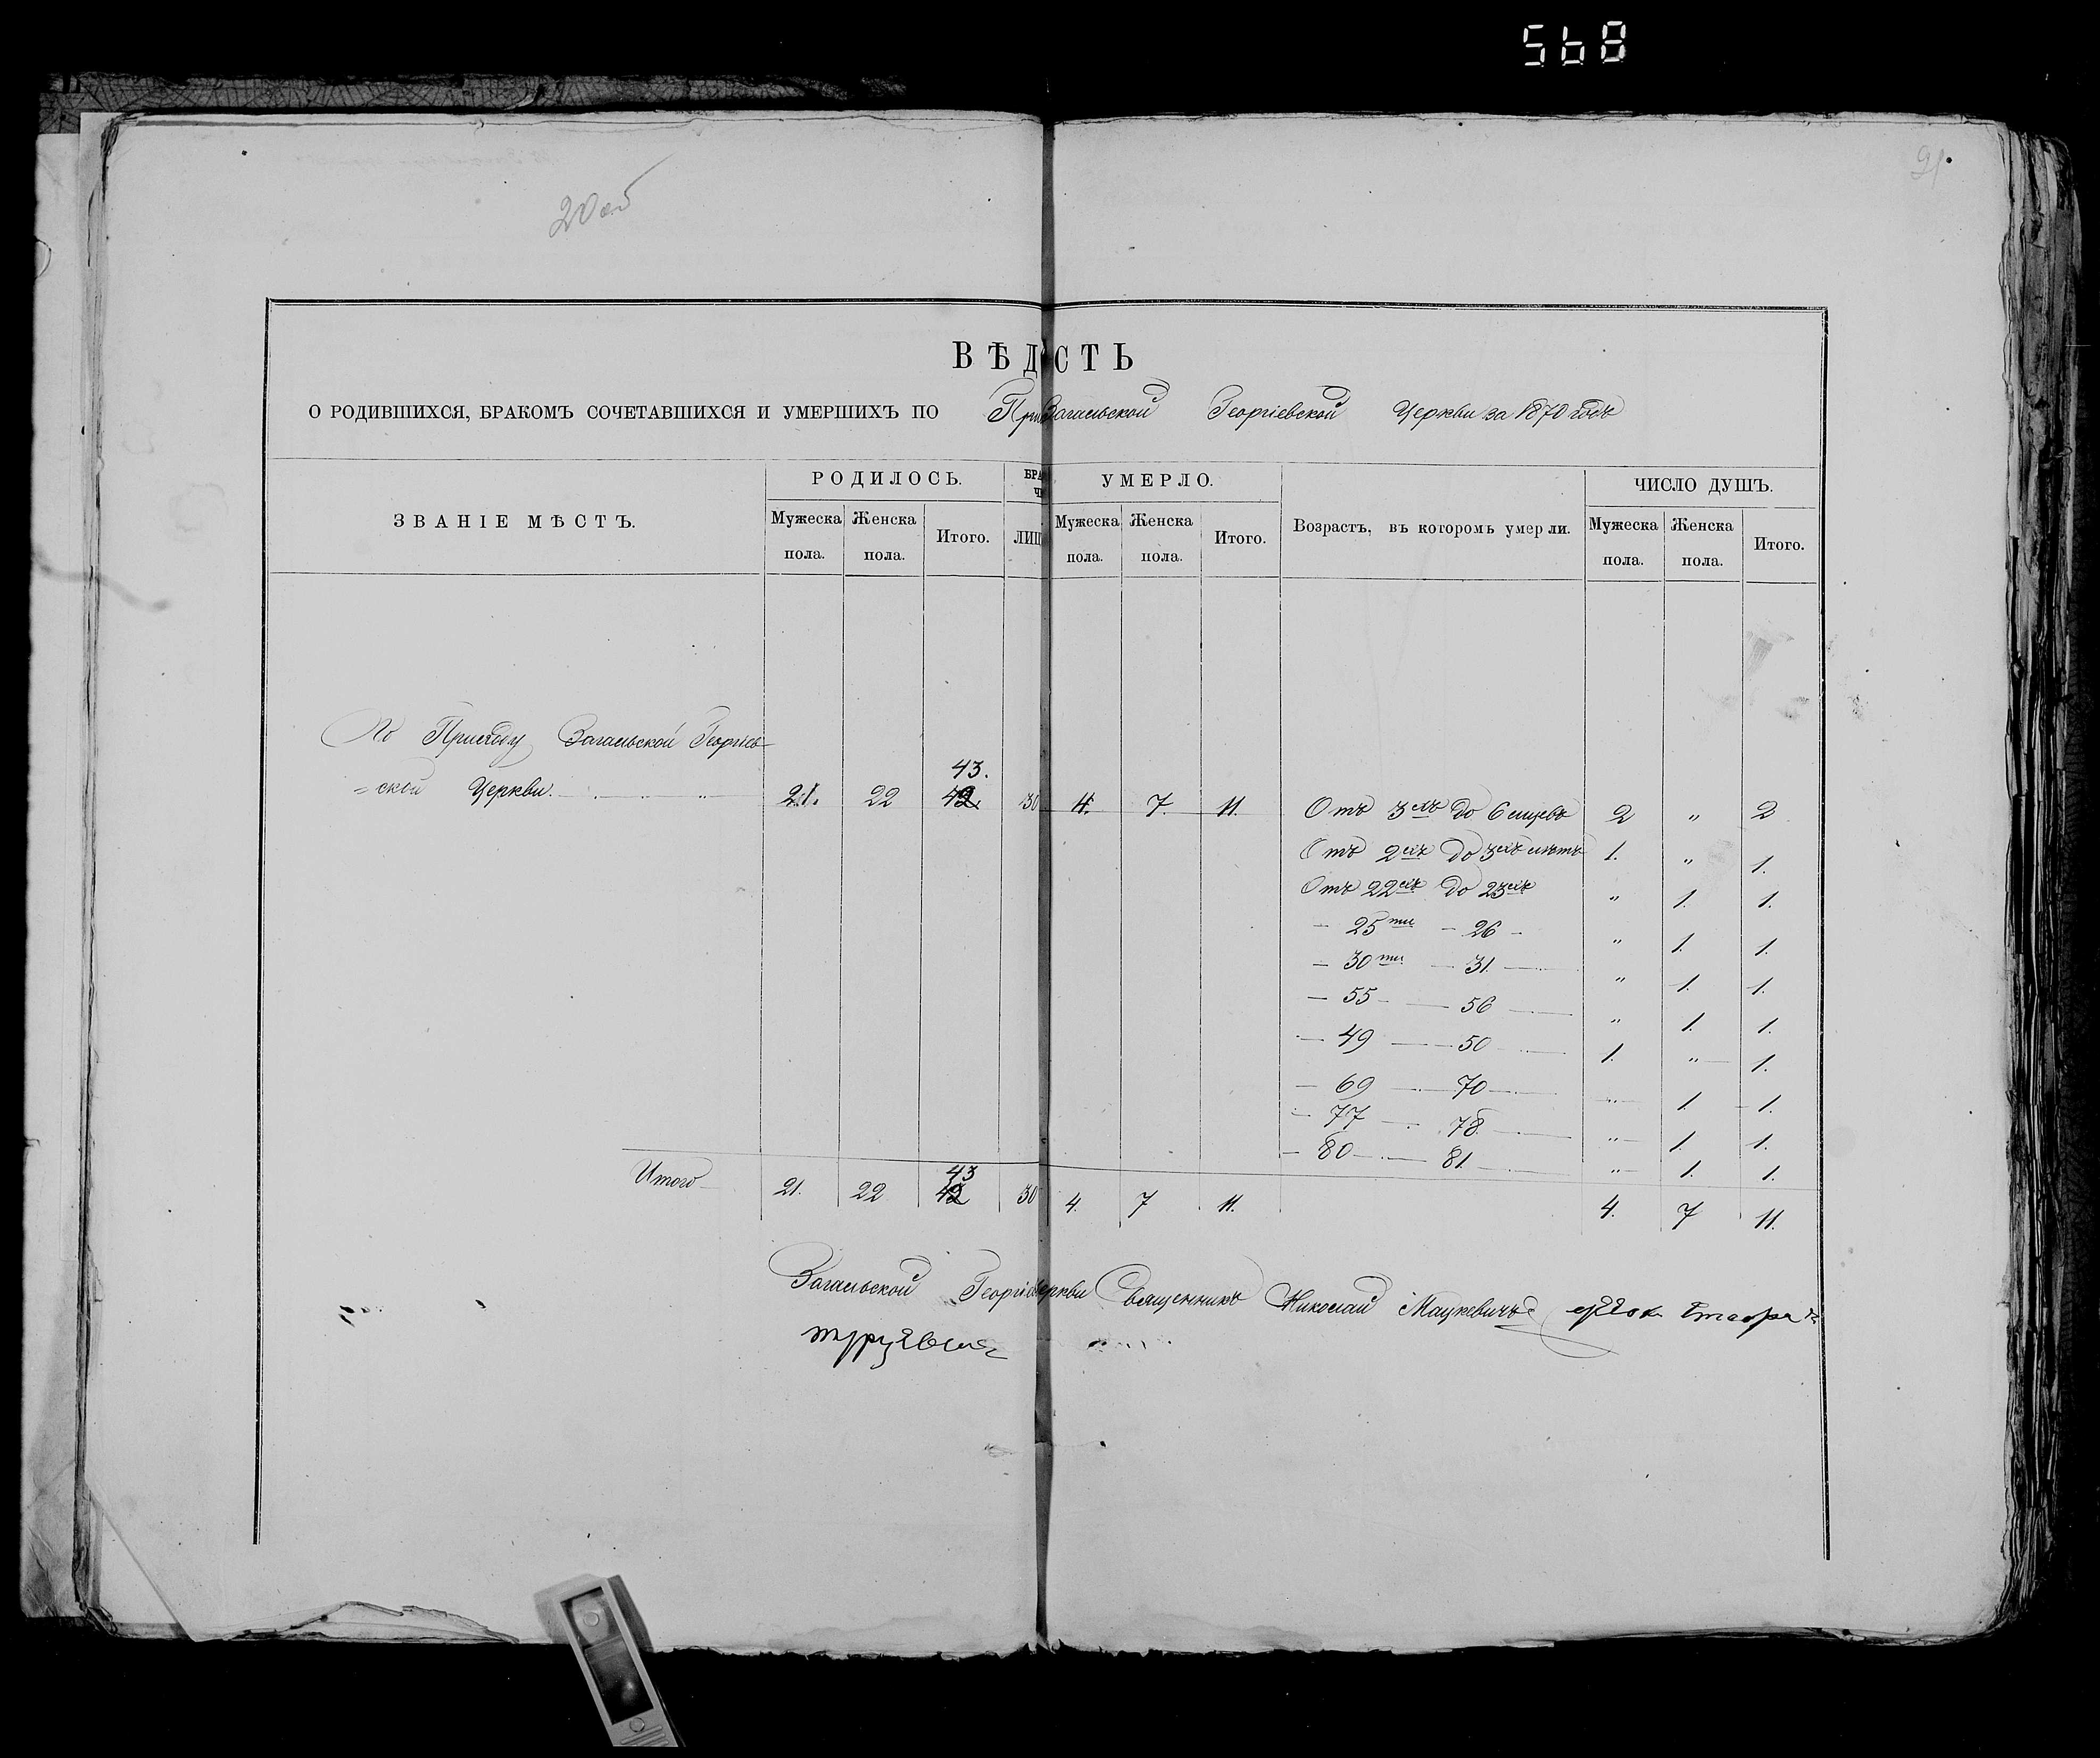 568
20 об
91.
ВѢД СТЬ
О РОДИВШИХСЯ, БРАКОМЪ СОЧЕТАВШИХСЯ И УМЕРШИХЪ ПО При Загальской Георгіевской Церкви за 1870 годъ
ЗВАНІЕ МѢСТЪ. РОДИЛОСЬ. БРА УМЕРЛО. Возрастъ, въ которомъ умерли. ЧИСЛО ДУШЪ.
Мужеска пола. Женска пола. Итого. ЛИЦ Мужеска пола. Женска пола. Итого. Мужеска пола. Женска пола. Итого.
По Приходу Загальской Георгіев-
43.
=ской Церкви. 21. 22 42. 30 4. 7. 11. Отъ 3ехъ до 6 мцевъ 2 " 2
Отъ 2ехъ до 3ехъ лѣтъ 1. " 1.
Отъ 22ехъ до 23ехъ " 1. 1.
— 25ти — 26 — " 1. 1.
— 30ти — 31. — " 1. 1.
— 55 — 56 — " 1. 1.
— 49 — 50 — 1. " 1.
— 69 — 70 — " 1. 1.
— 77 — 78. — " 1. 1.
— 80 — 81. — " 1. 1.
43
Итого 21. 22 42 30 4. 7 11. 4. 7 11.
Загальской Георгі еркви Священникъ Николай Мацкевичъ